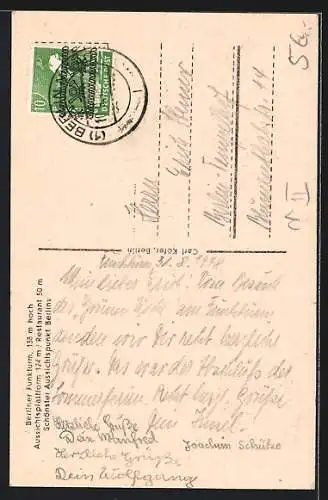 10
DEUTSCHE POST
(1) BERLIN
5 6.-
Herrn
Erich
Berlin-Tempelhof
14
II
Carl Köfer, Berlin
Berliner Funkturm, 138 m hoch
Aussichtsplattform 124 m / Restaurant 50 m
Schönster Aussichtspunkt Berlins
31. 8. 1948
Mein lieber Erich! Vom Besuch
der Grünen am Funkturm
senden wir Dir recht herzliche
Grüße. Das war der Abschluß der
Sommerferien. Recht herzl. Grüße
Dein
Herzliche Grüße
Dein Manfred
Joachim Schulze
Herzliche Grüße
Dein Wolfgang